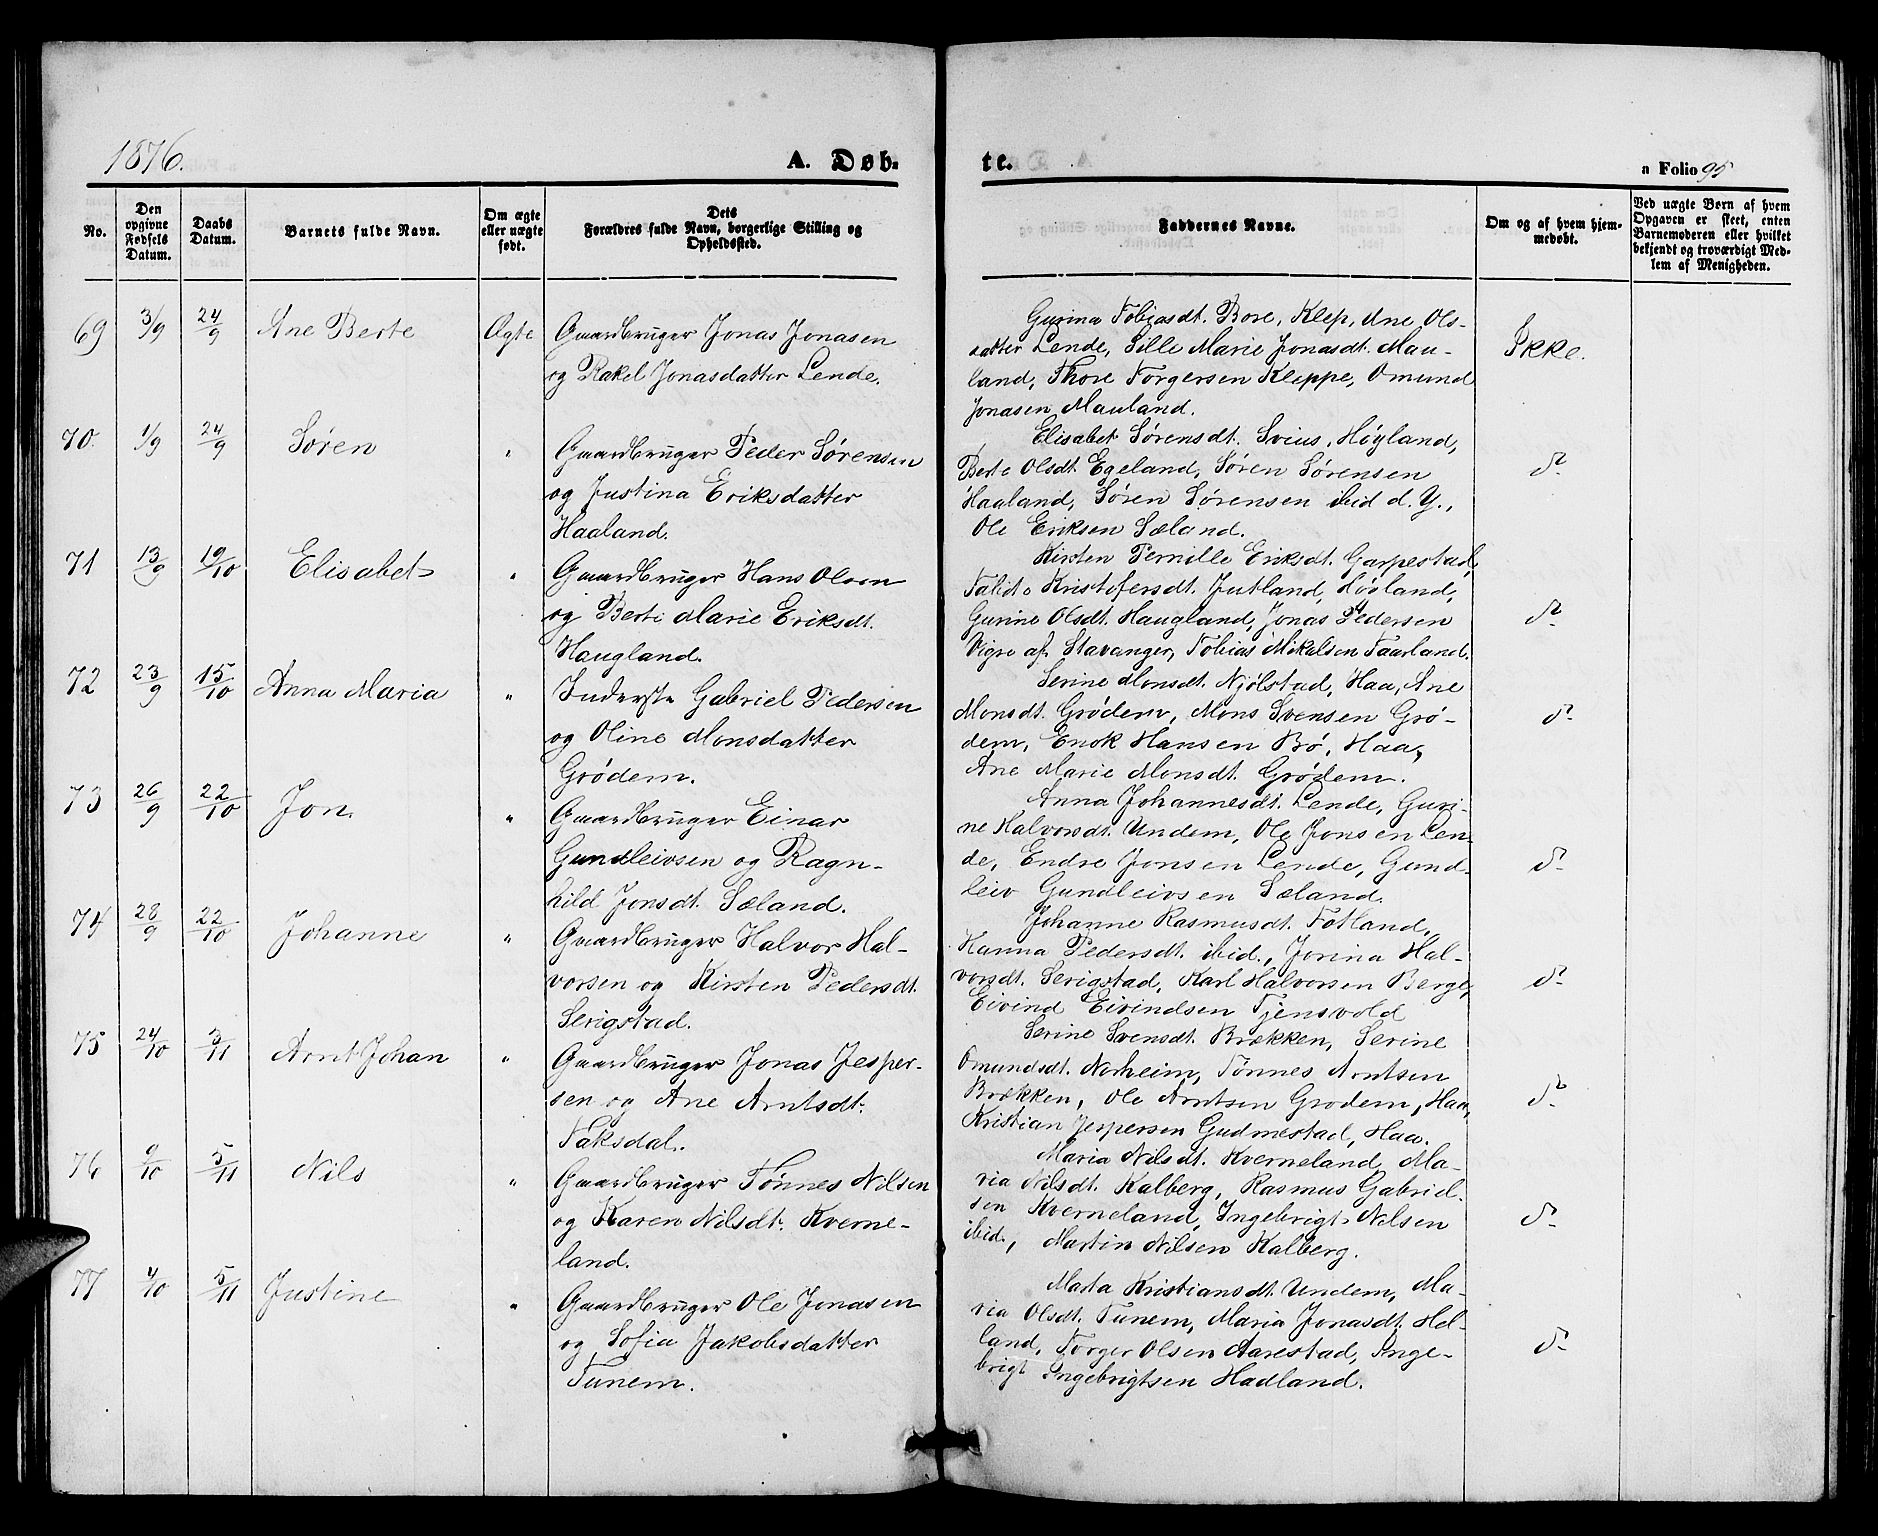 1876.
A. Døb-
te.
a Folio 95
No.
Den opgivne Fødsels Datum.
Daabs Datum.
Barnets fulde Navn.
Om ægte eller uægte født.
Dets Forældres fulde Navn, borgerlige Stilling og Opholdssted.
Faddernes Navne.
Om og af hvem hjemmedøbt.
Ved uægte Børn af hvem Opgaven er skeet, enten Barnemoderen eller hvilket bekjendt og troværdigt Medlem af Menigheden.
69 3/9 24/9 Ane Berte Ægte
Gaardbruger Jonas Jonasen
og Rakel Jonasdatter Lende.
Gurina Tobiasdt. Bore, Klep, Ane Ols-
datter Lende, Sille Marie Jonasdt. Mau-
land, Thore Torgersen Kleppe, Omund
Jonasen Mauland.
Ikke.
70. 1/9 24/9 Søren "
Gaardbruger Peder Sørensen
og Justina Eriksdatter
Haaland.
Elisabet Sørensdt. Svius, Høyland,
Berte Olsdt. Egeland, Søren Sørensen
Haaland, Søren Sørensen ibid d. Y.,
Ole Eriksen Sæland.
do.
71 13/9 19/10 Elisabet "
Gaardbruger Hans Olsen
og Berte Marie Eriksdt.
Haugland.
Kirsten Pernille Eriksdt. Garpestad,
Talite Kristofersdt. Jutland, Høyland,
Gurine Olsdt. Haugland, Jonas Pedersen
Vigre af Stavanger, Tobias Mikalsen Taarland.
do.
72 23/9 15/10 Anna Maria "
Inderste Gabriel Pedersen
og Oline Monsdatter
Grødem.
Serine Monsdt. Njølstad, Haa, Ane
Monsdt. Grødem, Mons Svensen Grø-
dem, Enok Hansen Bø, Haa,
Ane Marie Monsdt. Grødem.
do.
73 26/9 22/10 Jon. "
Gaardbruger Einar
Gundleivsen og Ragn-
hild Jonsdt. Sæland.
Anna Johannesdt. Lende, Guri-
ne Halvorsdt. Undem, Ole Jonsen Len-
de, Endre Jonsen Lende, Gund-
leiv Gundleivsen Sæland.
do.
74 28/9 22/10 Johanne "
Gaardbruger Halvor Hal-
vorsen og Kirsten Pedersdt.
Serigstad.
Johanne Rasmusdt. Fotland,
Hanna Pedersdt. ibid., Jorina Hal-
vorsdt. Serigstad, Karl Halvorsen Berge,
Eivind Eivindsen Tjensvold
do.
75 24/10 3/11 Arnt Johan "
Gaardbruger Jonas Jesper-
sen og Ane Arntsdt.
Taksdal.
Serine Svensdt. Brækken, Serine
Omundsdt. Norheim, Tønnes Arntsen
Brækken, Ole Arntsen Grødem, Haa,
Kristian Jespersen Gudmestad, Haa.
do.
76 9/10 5/11 Nils "
Gaardbruger Tønnes Nilsen
og Karen Nilsdt. Kverne-
land.
Maria Nilsdt. Kverneland, Ma-
ria Nilsdt. Kalberg, Rasmus Gabriel-
sen Kverneland, Ingebrigt Nilsen
ibid., Martin Nilsen Kalberg.
do.
77 4/10 5/11 Justine "
Gaardbruger Ole Jonasen
og Sofia Jakobsdatter
Tunem.
Marta Kristiansdt. Undem, Ma-
ria Olsdt. Tunem, Maria Jonasdt. Hel-
land, Torger Olsen Aarestad, Inge-
brigt Ingebrigtsen Hadland.
do.